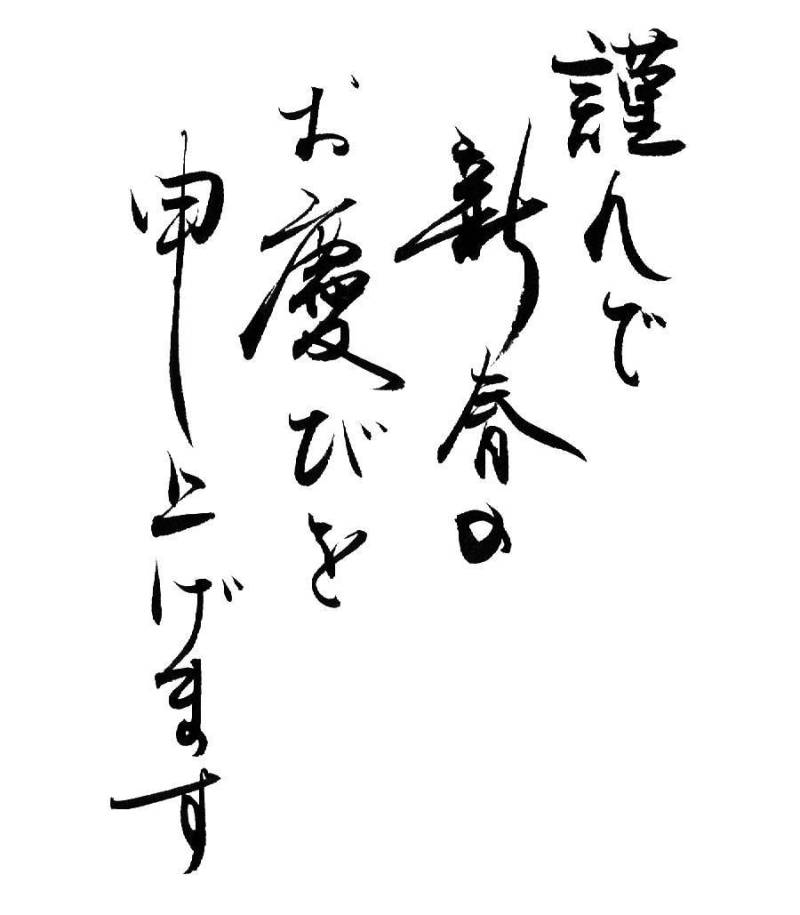 謹んで
新春の
お慶びを
申上げます